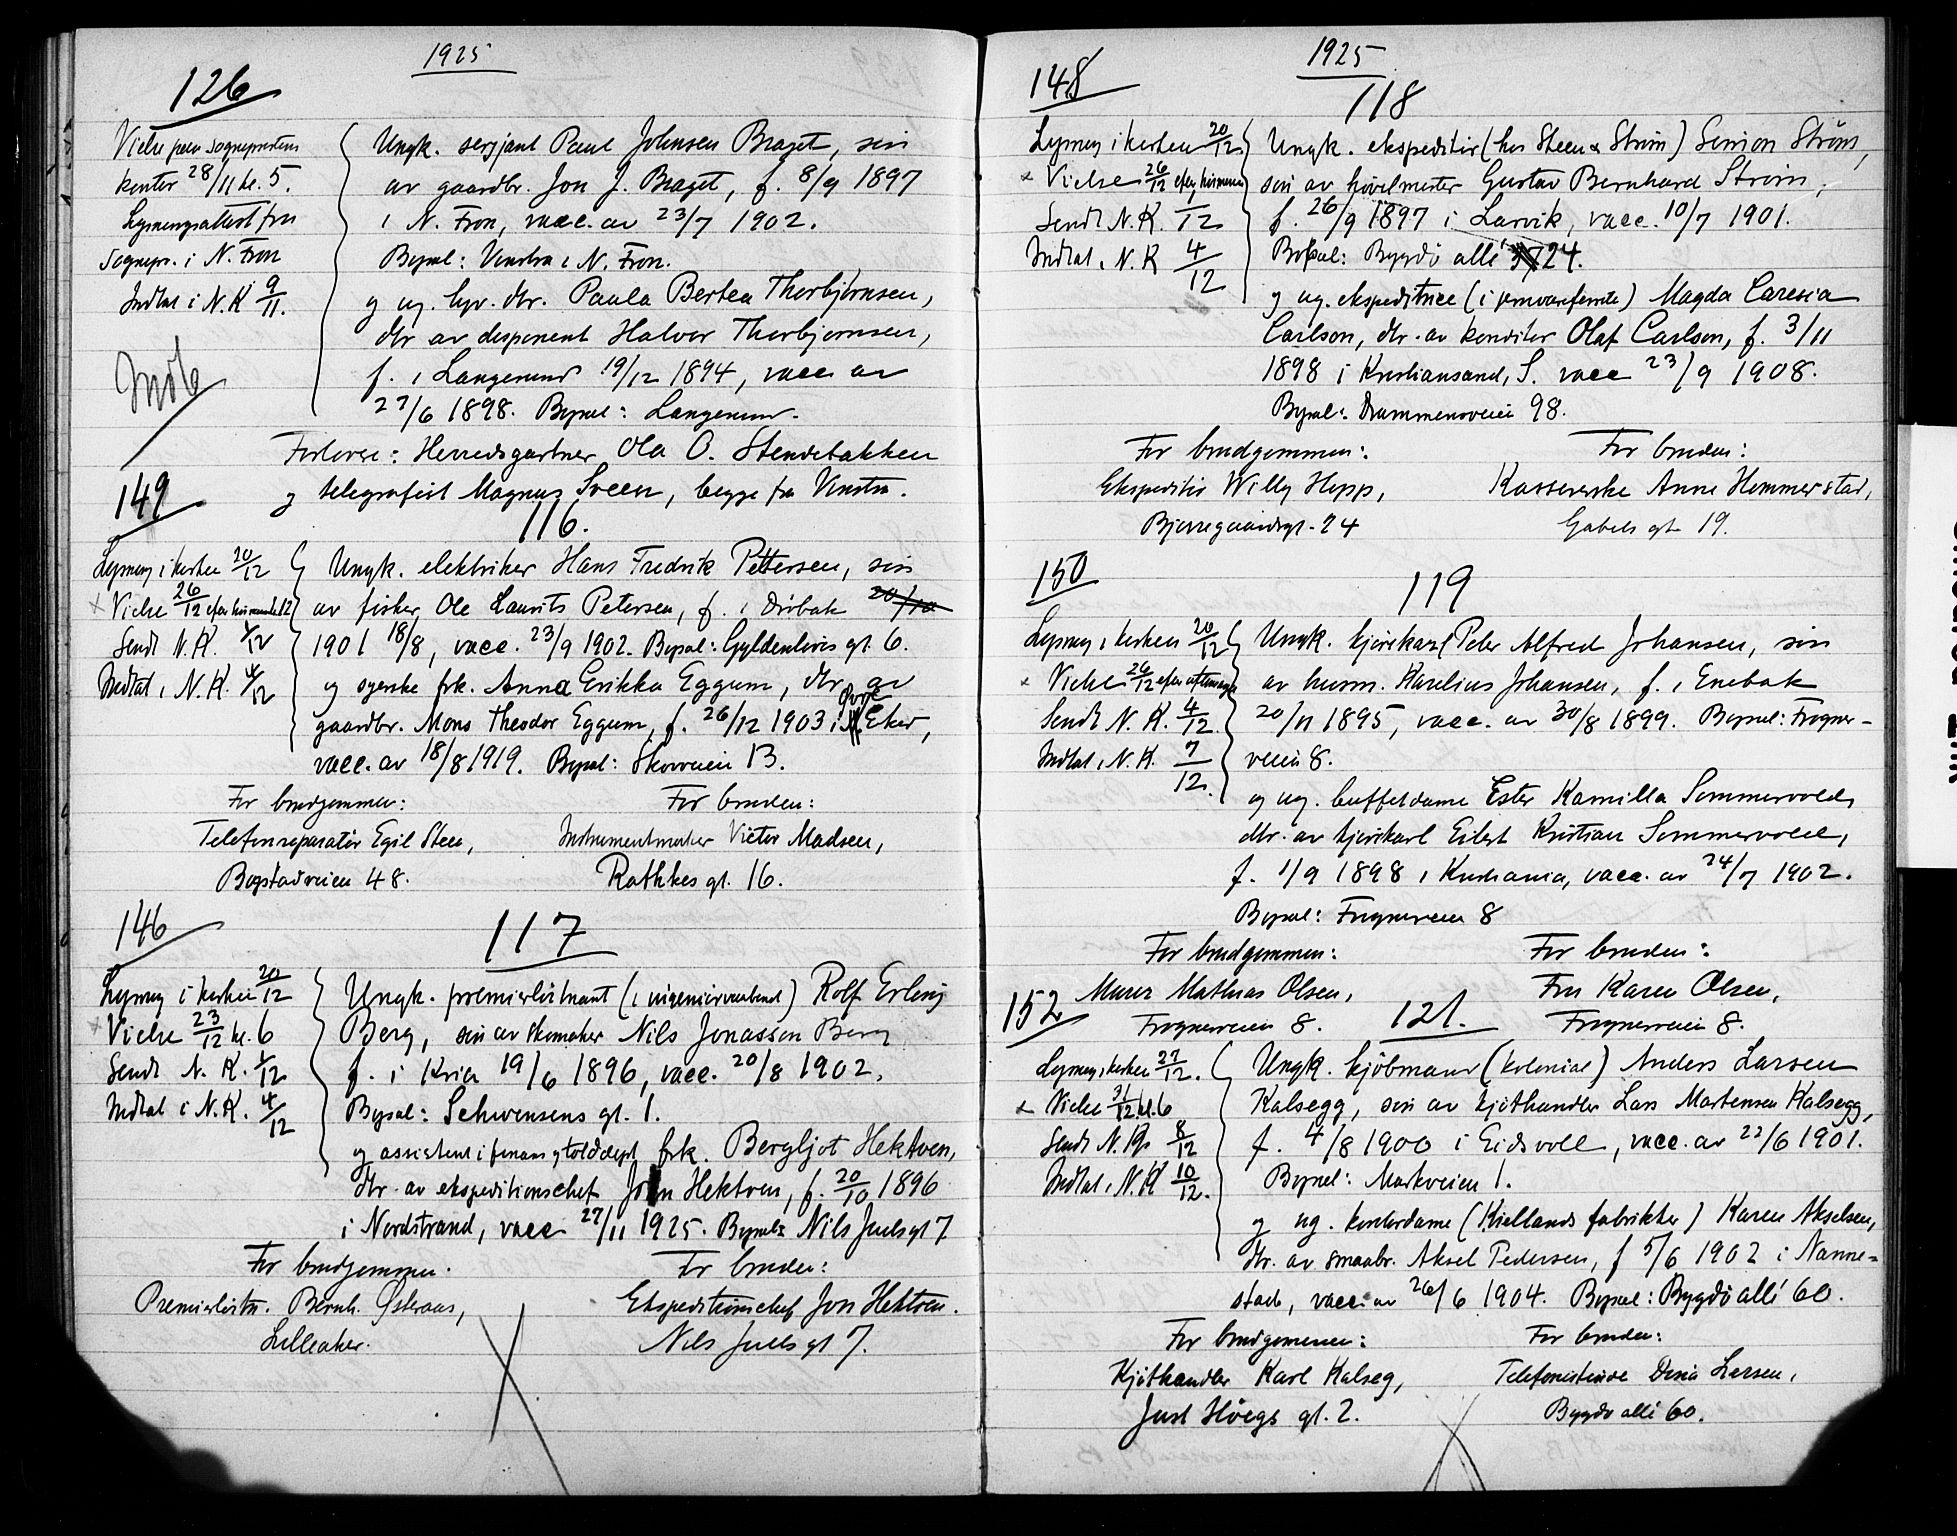 1925
126
Vielse paa sogneprestens
kontor 28/11 kl. 5.
Lysningsattest fra
sognepr. i N. Fron
Indtat i N. K 9/11.
Ungk. sersjant Paul Johnsen Braget, søn
av gaardbr. Jon J. Braget, f. 8/9 1897
i N. Fron, vacc. av 23/7 1902.
Bopæl: Vinstra i N. Fron.
og ug. hjv. dtr. Paula Bertea Thorbjørnsen,
dtr av disponent Halvor Thorbjørnsen,
f. i Langesund 19/12 1894, vacc av
27/6 1898. Bopæl: Langesund.
Forlovere: Herredsgartner Ola O. Stendebakken
og telegrafist Magnus Sveen, begge fra Vinstra.
149
116.
Lysning i kirken 20/12
x Vielse 26/12 efter høimessen kl 2
Sendt N. K. 1/12
Indtat i N. K. 4/12
Ungk. elektriker Hans Fredrik Pettersen, søn
av fisker Ole Laurits Petersen, f. i Drøbak 20/10
1901 18/8, vacc. 23/9 1902. Bopæl: Gyldenløves gt. 6.
og syerske frk. Anna Erikka Eggum, dtr av
gaardbr. Mons Theodor Eggum, f. 26/12 1903 i Øvre Eker,
vacc. av 18/8 1919. Bopæl: Skovveien 13.
For brudgommen: For bruden:
Telefonreparatør Egil Steen, Instrumentmaker Victor Madsen,
Bogstadveien 48. Rathkes gt. 16.
146
117
Lysning i kirken 20/12
x Vielse 23/12 kl. 6
Sendt N. K. 1/12
Indtat i N. K. 4/12
Ungk. premierløitnant (i ingeniørvaabnet) Rolf Erling
Berg, søn av skomaker Nils Jonassen Berg
f. i Kria 19/6 1896, vacc. 20/8 1902.
Bopæl: Schwensens gt. 1.
og assistent i finans og tolddept frk. Bergljot Hektoen,
dtr. av ekspeditionschef Jon Hektoen, f. 20/10 1896
i Nordstrand, vacc 27/11 1925. Bopæl: Nils Juels gt 7
For brudgommen. For bruden:
Premierløitn. Bernh. Østeraas, Ekspeditionschef Jon Hektoen.
Lilleaker. Nils Juels gt 7.
1925
148
118
Lysning i kirken 20/12
x Vielse 26/12 efter høimessen
Sendt N. K. 1/12
Indtat i N. K 4/12
Ungk. ekspeditør (hos Steen & Strøm) Simon Strøm,
søn av høvelmester Gustav Bernhard Strøm,
f. 26/9 1897 i Larvik, vacc. 10/7 1901.
Bopæl: Bygdø allé 24.
og ug. ekspeditrice (i jernvareforretn) Magda Caresia
Carlson, dtr. av konditor Olaf Carlson, f. 3/11
1898 i Kristiansand, S. vacc 23/9 1908.
Bopæl: Drammensveien 98.
For brudgommen: For bruden:
Ekspeditør Willy Hepp, Kassererske Anne Hemmerstad,
Bjerregaardsgt. 24 Gabels gt 19.
150
119
Lysning i kirken 20/12
x Vielse 26/12 efter aftensang
Sendt N. K. 4/12.
Indtat i N. K. 7/12.
Ungk. kjørekarl Peder Alfred Johansen, søn
av husm. Karelius Johansen, f. i Enebak
20/11 1895, vacc. av 30/8 1899. Bopæl: Frogner-
veien 8.
og ug. buffetdame Ester Kamilla Sommervold,
dtr. av kjørekarl Eilert Kristian Sommervold,
f. 1/9 1898 i Kristiania, vacc. av 24/7 1902.
Bopæl: Frognerveien 8
For brudgommen: For bruden:
Murer Mathias Olsen, Fru Karen Olsen,
Frognerveien 8. Frognerveien 8.
152
121.
Lysning i kirken 27/12.
x Vielse 31/12 kl. 6
Sendt N. K. 8/12
Indtat i N. K 10/12.
Ungk. kjøbmand (kolonial) Anders Larsen
Kalsegg, søn av kjøthandler Lars Martensen Kalsegg,
f. 4/8 1900 i Eidsvoll, vacc. av 22/6 1901.
Bopæl: Markveien 1.
og ug. kontordame (Kiellands fabrikker) Karen Akselsen,
dtr. av smaabr. Aksel Pedersen, f 5/6 1902 i Nanne-
stad, vacc. av 26/6 1904. Bopæl: Bygdø allé 60.
For brudgommen: For bruden:
Kjøthandler Karl Kalseg, Telefonistinde Dina Larsen,
Just Høegs gt. 2. Bygdø allé 60.